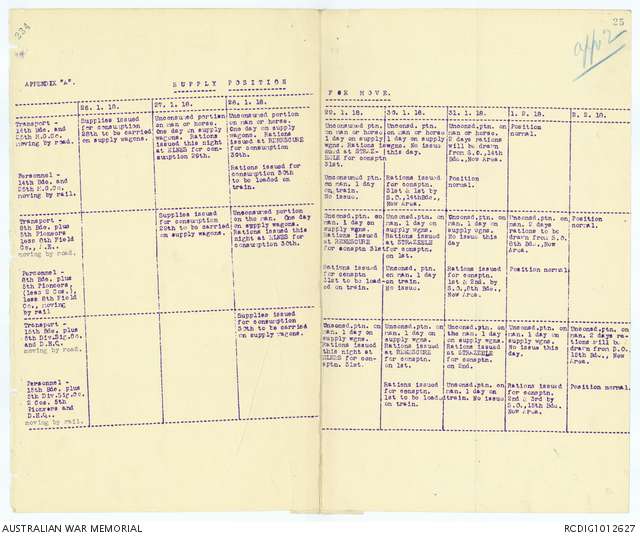 234
25
app 2
APPENDIX "A".
SUPPLY POSITION
FOR MOVE.
26. 1. 18.
27. 1. 18.
28. 1. 18.
29. 1. 18.
30. 1. 18.
31. 1. 18.
1. 2. 18
2. 2. 18.
Transport -
14th Bde. and
25th M.G.Co.
moving by road.
Supplies issued
for consumption
28th to be carried
on supply wagons.
Unconsumed portion
on man or horse.
One day on supply
wagons. Rations
issued this night
at ELNES for con-
sumption 29th.
Unconsumed portion
on man or horse.
One day on supply
wagons. Rations
issued at REMESCURE
for consumption
30th.
Unconsumed ptn.
on man or horse
1 day on supply
wgns. Rations
issued at STRAZ-
EELE for consptn
31st.
Unconsd. ptn.
on man or horse
1 day on supply
wgns. No issue
this day.
Unconsd.ptn. on
man or horse.
2 days rations
will be drawn
from S.O.,14th
Bde.,New Area.
Position
normal.
Personnel -
14th Bde. and
25th M.G.Co.
moving by rail.
Rations issued
for consumption 30th
to be loaded on
train.
Unconsumed ptn.
on man. 1 day
on train.
No issue.
Rations issued
for consptn.
31st & 1st by
S.O.,14thBde.,
New Area.
Position
normal.
Transport -
8th Bde. plus
5th Pioneers
less 8th Field
Co., A.E.
moving by road.
Supplies issued
for consumption
29th to be carried
on supply wagons.
Unconsumed portion
on the man. One day
on supply wagons.
Rations issued this
night at ELNES for
consumption 30th.
Unconsd.ptn. on
man. 1 day on
supply wgns.
Rations issued
at REMESCURE
for consptn 31st
Unconsd. ptn. on
man. 1 day on
supply wgns.
Rations issued
at STRAZEELE
for consptn.
on 1st.
Unconsd.ptn. on
man. 1 day on
supply wgns.
No issue this
day
Unconsd.ptn. on
man. 2 days
rations to be
drawn from S.O.
8th Bde.,New
Area.
Position
normal.
Personnel -
8th Bde. plus
5th Pioneers,
(less 2 Cos.)
less 8th Field
Co., moving
by rail
Rations issued
for consptn
31st to be load-
ed on train.
Unconsd. ptn.
on man. 1 day
on train.
No issue.
Rations issued
for consptn.
1st & 2nd. by
S.O.,8th Bde.,
New Area.
Position normal.
Transport -
15th Bde. plus
5th Div.Sig.Co.
and D.H.Q.
moving by road.
Supplies issued
for consumption
30th to be carried
on supply wagons.
Unconsd.ptn. on
man. 1 day on
supply wgns.
Rations issued
this night at
ELNES for con-
sptn. 31st.
Unconsd.ptn. on
man. 1 day on
supply wgns.
Rations issued
at REMESCURE
for consptn.
on 1st.
Unconsd.ptn. on
the man. 1 day
on supply wgns.
Rations issued
at STRAZEELE
for consptn.
on 2nd.
Unconsd.ptn. on
man. 1 day on
supply wgns.
No issue this
day.
Unconsd.ptn. on
man. 2 days ra-
tions will be
drawn from S.O.
15th Bde., New
Area.
Personnel -
15th Bde. plus
5th Div.Sig.Co.
2 Cos. 5th
Pioneers and
D.H.Q.
moving by rail.
Rations issued
for consptn.
1st to be load
on train.
Unconsd.ptn. on
man. 1 day on
train. No issue.
Rations issued
for consptn.
2nd & 3rd by
S.O.,15th Bde.,
New Area.
Position normal.
AUSTRALIAN WAR MEMORIAL
RCDIG1012627